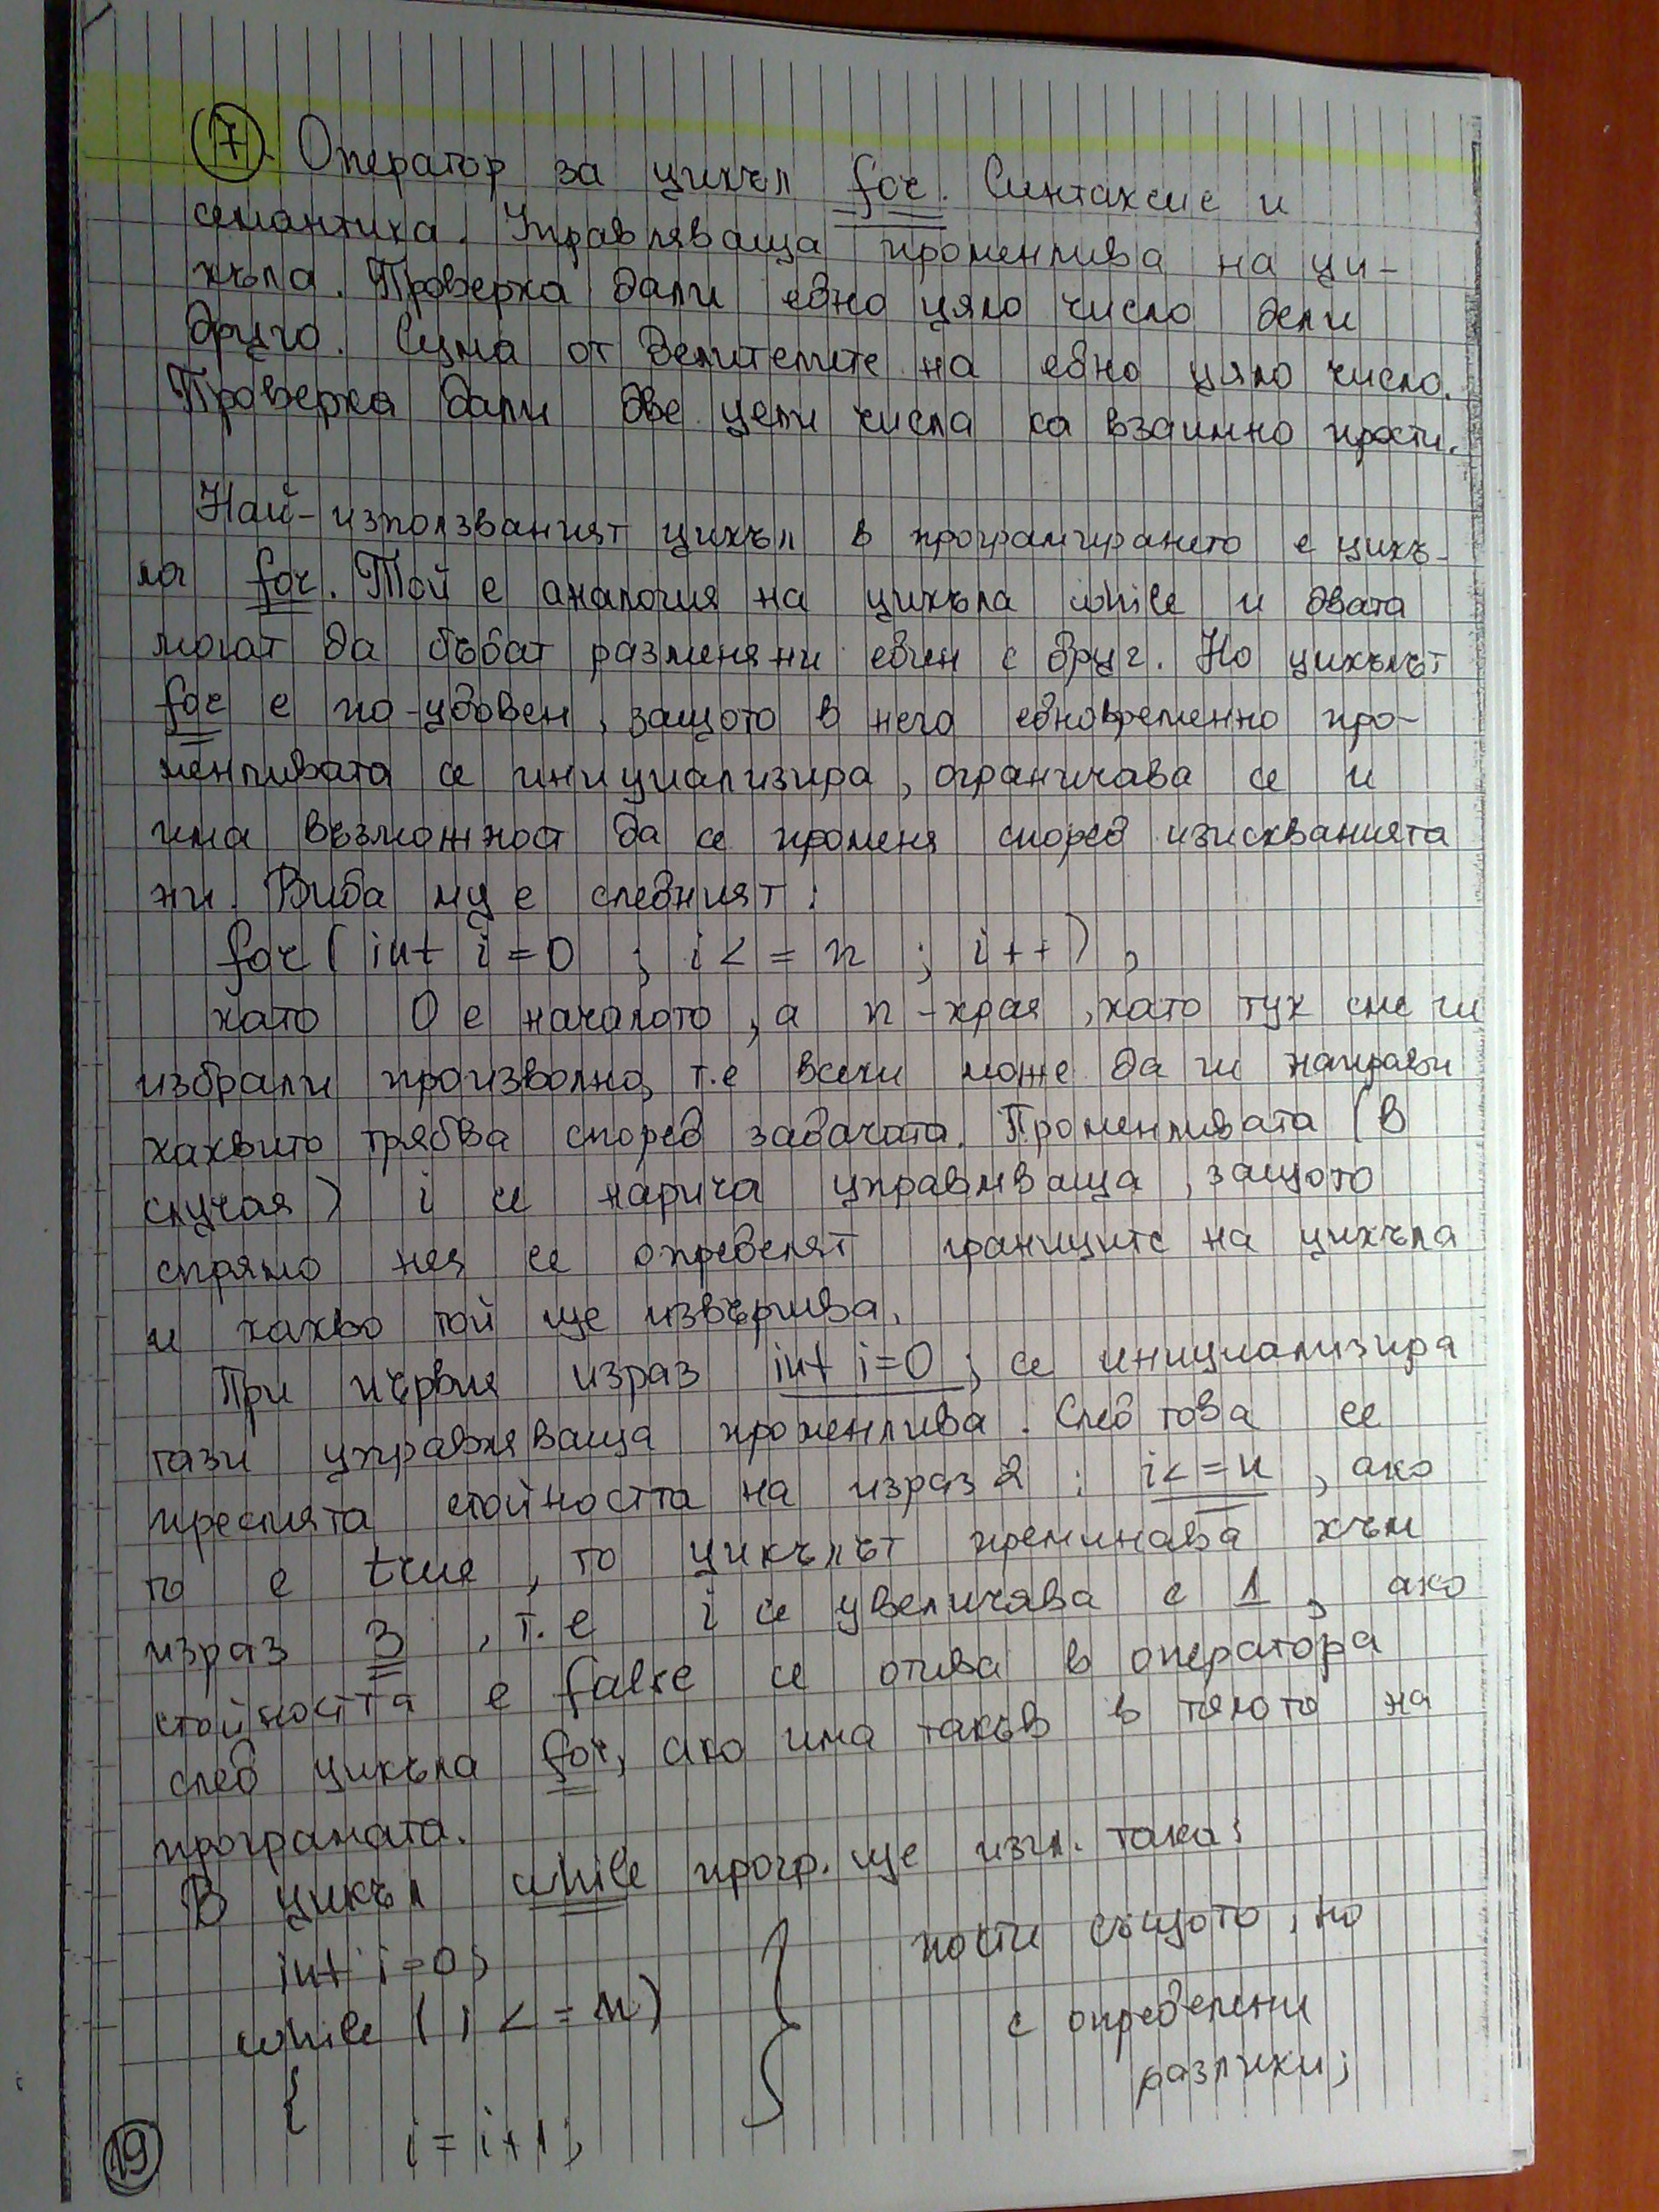 7. Оператор за цикъл for. Синтаксис и
семантика. Управляваща променлива на ци-
къла. Проверка дали едно цяло число дели
друго. Сума от делителите на едно цяло число.
Проверка дали две цели числа са взаимно прости.
Най-използваният цикъл в програмирането е цикъ-
ла for. Той е аналогия на цикъла while и двата
могат да бъдат разменяни един с друг. Но цикълът
for е по-удобен, защото в него едновременно про-
менливата се инициализира, ограничава се и
има възможност да се променя според изискванията
ни. Вида му е следният:
for ( int i = 0 ; i < = n ; i + + ) ,
като 0 е началото, а n - края, като тук сме ги
избрали произволно, т.е всеки може да ги направи
каквито трябва според задачата. Променливата (в
случая) i се нарича управляваща, защото
спрямо нея се определят границите на цикъла
и какво той ще извършва.
При първия израз int i=0; се инициализира
тази управляваща променлива. След това се
пресмята стойността на израз 2 : i< = n , ако
то е true, то цикълът преминава към
израз 3 , т.е i се увеличава с 1 , ако
стойността е false се отива в оператора
след цикъла for, ако има такъв в тялото на
програмата.
В цикъл while прогр. ще изгл. така:
int i=0;
while ( i < = n)
{
i = i+1;
почти същото, но
с определени
разлики;
19